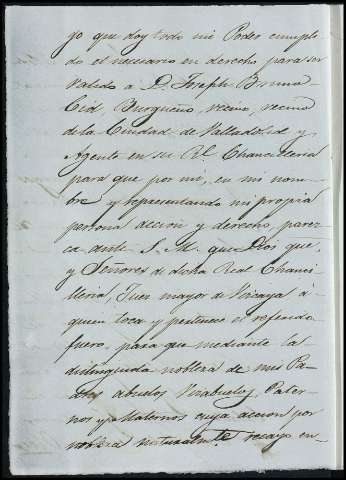 go que doy todo mi Poder cumpli-
do el necesario en derecho para ser
valido a D. Joseph Bruno
Cid, Burgueño, vecino, vecino
de la Ciudad de Valladolid y
Agente en su Rl. Chancilleria
para que por mi, en mi nom-
bre y representando mi propia
persona accion y derecho parez-
ca ante S. M. que Dios que
y Señores de dicha Real Chanci-
lleria, Juez mayor de Vizcaya á
quien toca y pertenece el referido
fuero, para que mediante la
distinguida nobleza de mis Pa-
dres abuelos Visabuelos, Pater-
nos y Maternos cuya accion por
nobleza naturalmte. recayo en-